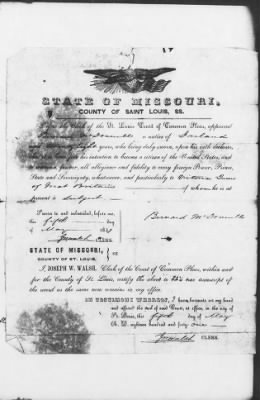 STATE OF MISSOURI,
COUNTY OF SAINT LOUIS, SS.
the Clerk of the St. Louis Court of Common Pleas, appeared
a native of Ireland
years, who being duly sworn, upon his oath declares,
his intention to become a citizen of the United States, and
all allegiance and fidelity to every foreign Power, Prince,
State and Sovereignty, whatsoever, and particularly to Victoria Queen
of Great Britain of whom he is at
present a Subject
Sworn to and subscribed, before me,
this fifth day
of May
CLERK.
STATE OF MISSOURI,
COUNTY OF ST. LOUIS.
I, JOSEPH W. WALSH, Clerk of the Court of Common Pleas, within and
for the County of St. Louis, do certify the above is a true transcript of
the record as the same now remains in my office.
IN TESTIMONY WHEREOF, I have hereunto set my hand
and affixed the seal of said Court, at office, in the city of
St. Louis, this fifth day of May
A. D. eighteen hundred and forty one
CLERK.